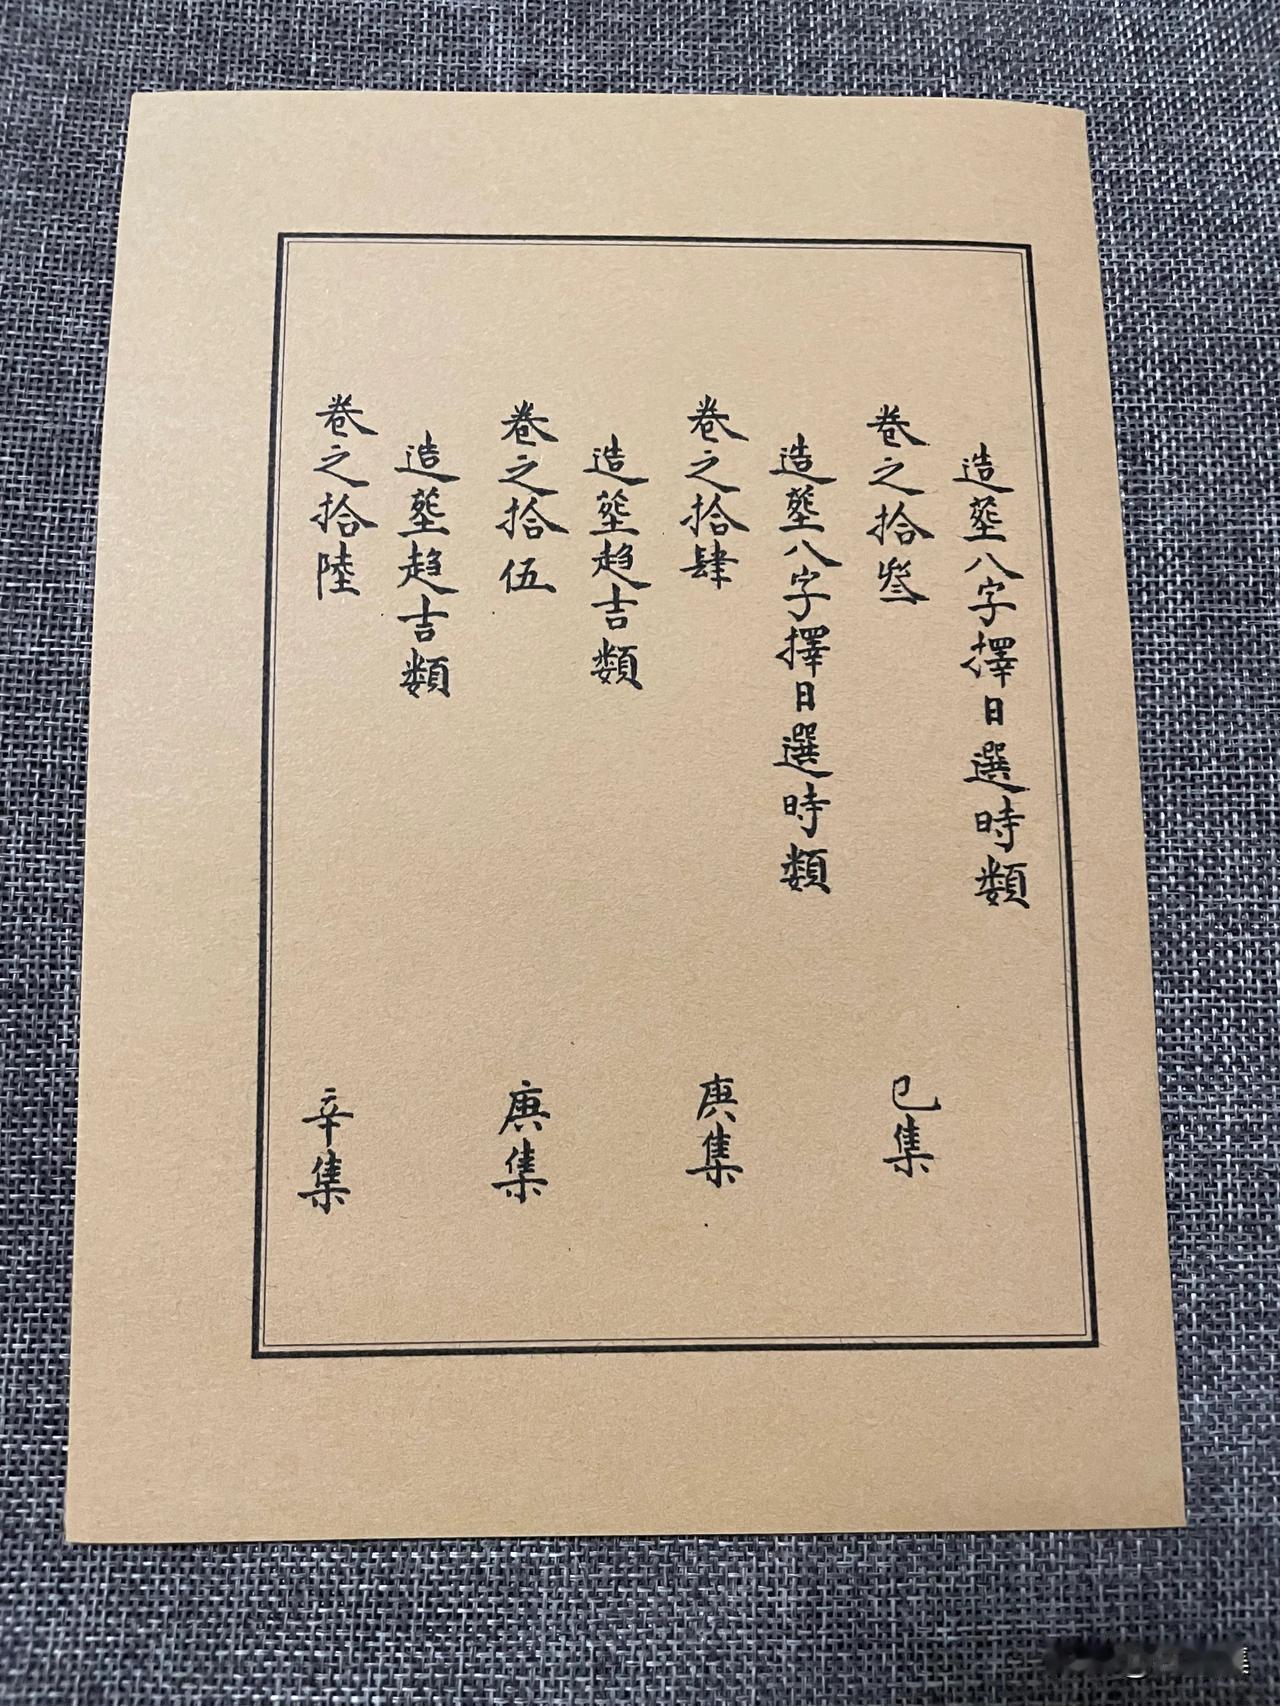 造塟八字擇日選時類
卷之拾叁 己集
造塟八字擇日選時類
卷之拾肆 庚集
造塟趋吉類
卷之拾伍 庚集
造塟趋吉類
卷之拾陸 辛集